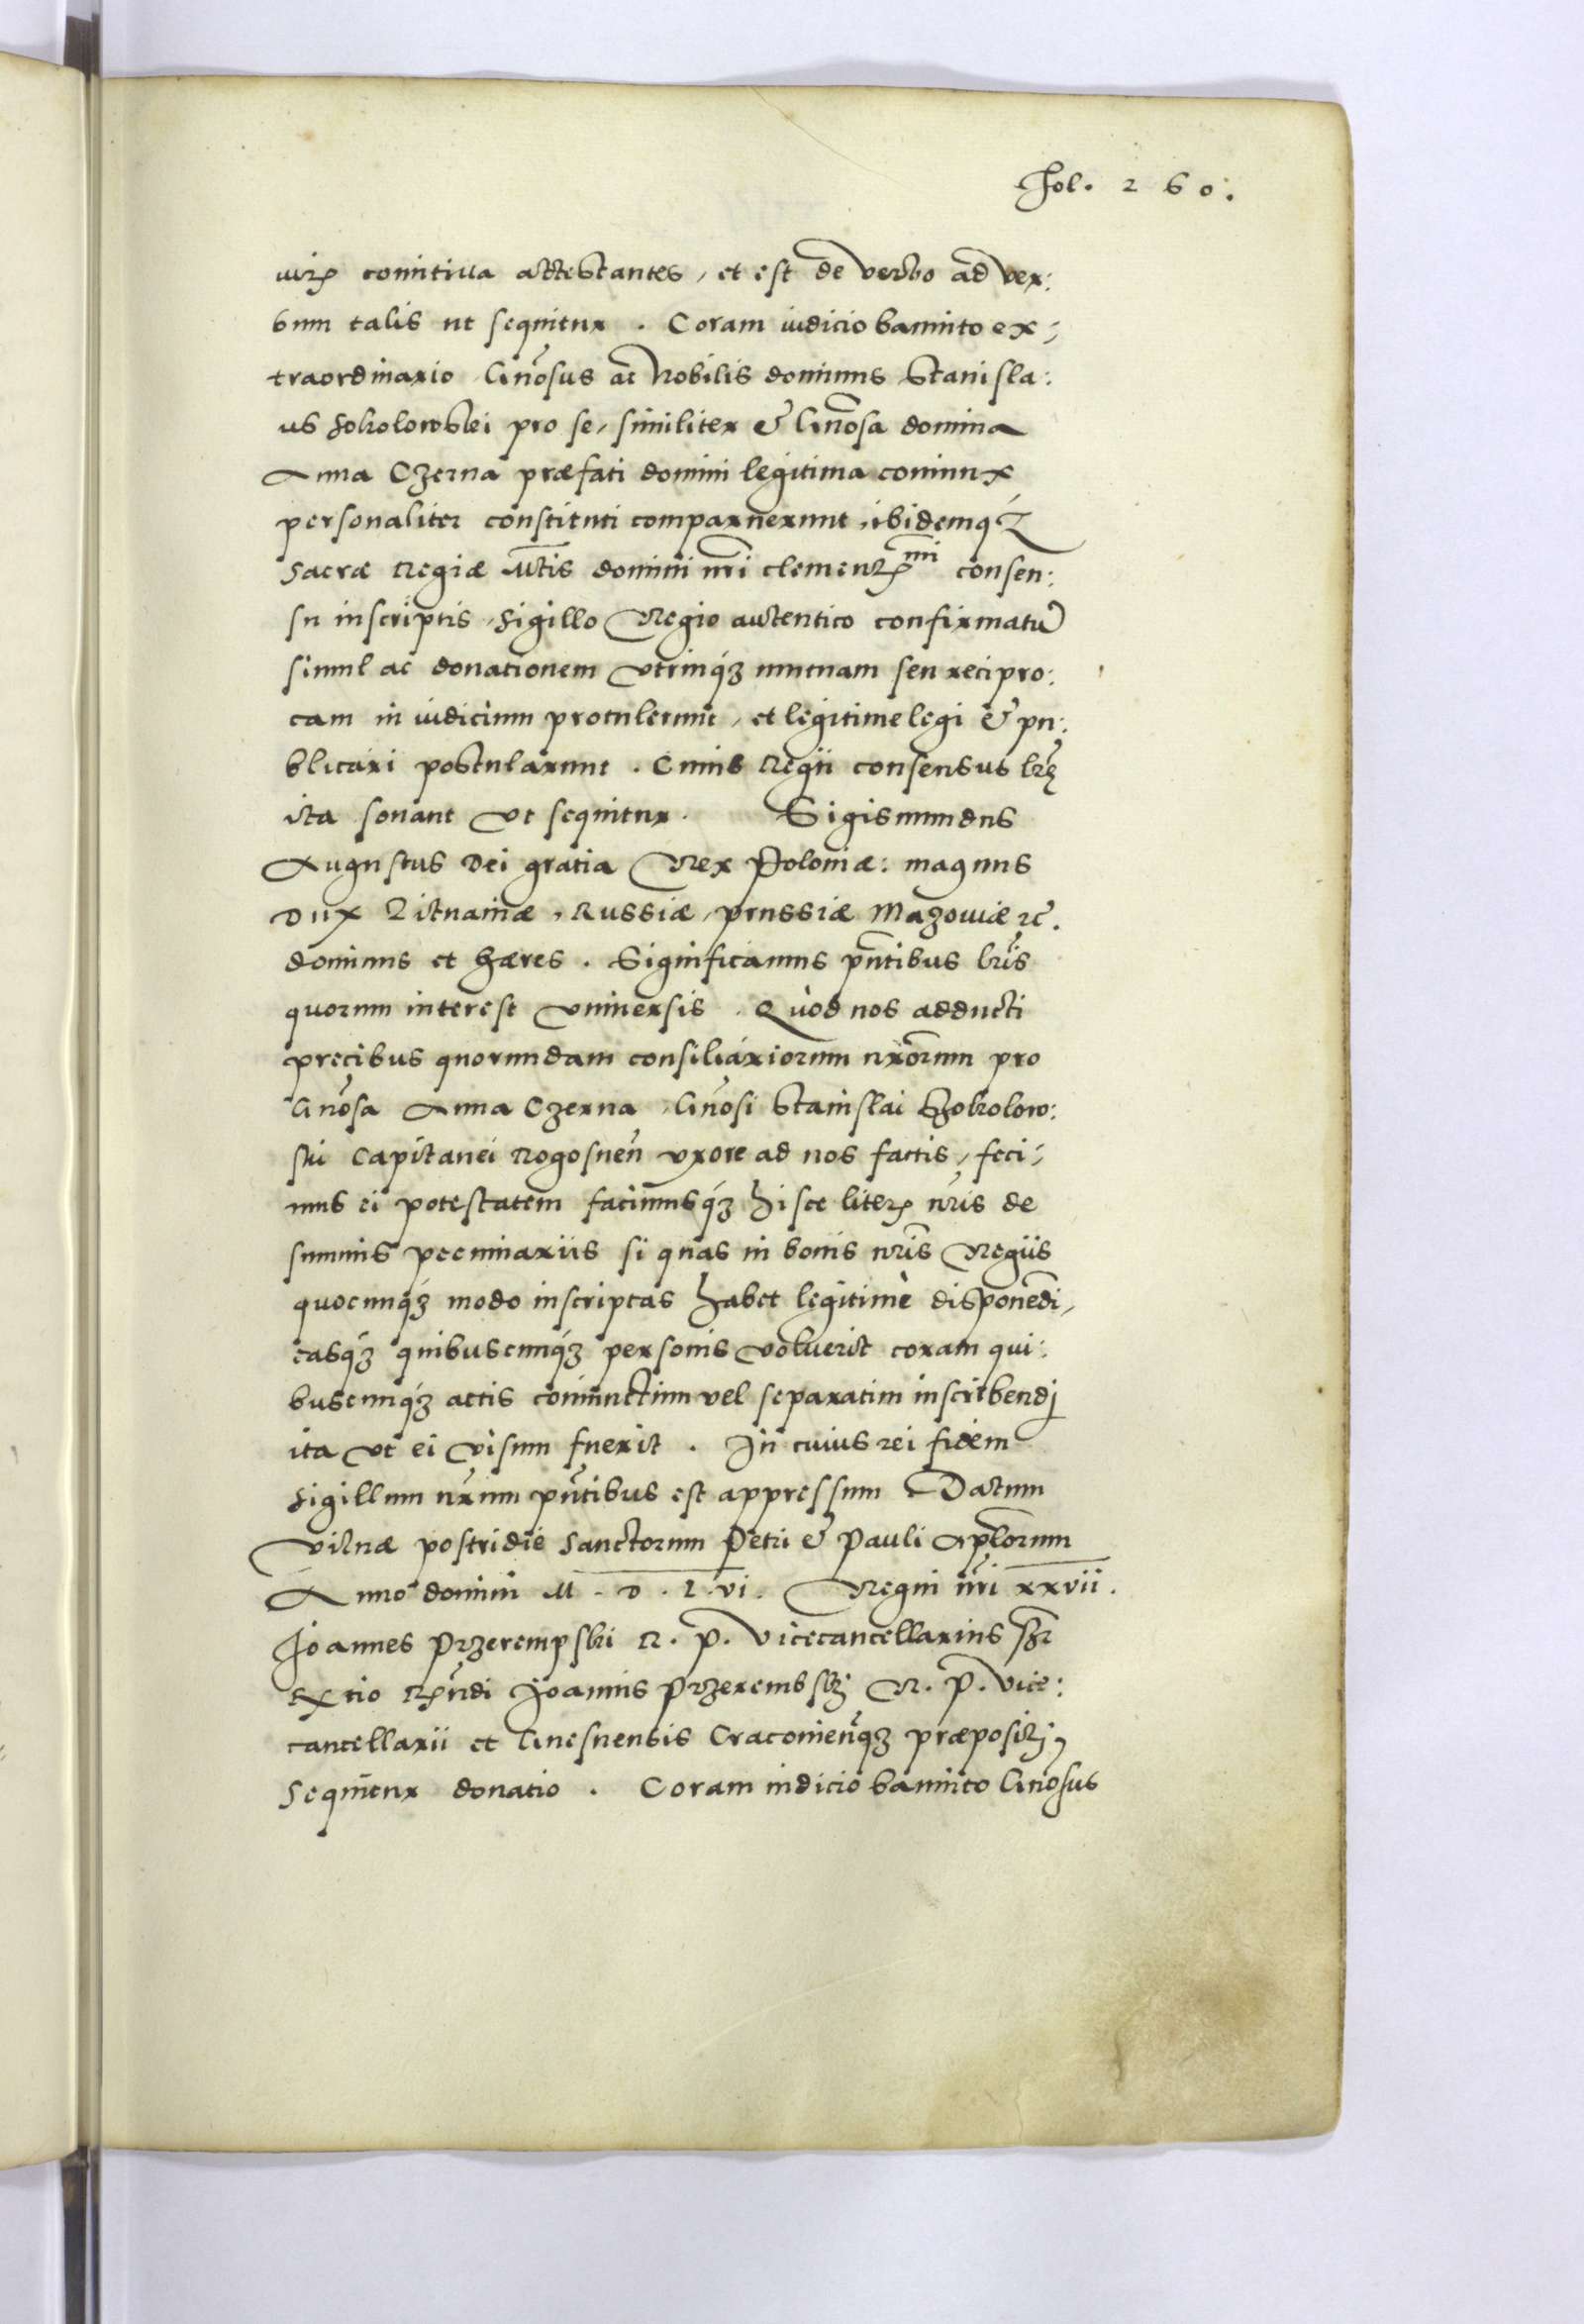 Fol. 260.
iur̃ comitiua attestantes, et est de verbo ad ver:
bum talis ut sequitur. Coram iudicio bannito ex:
traordinario Gnõsus ac Nobilis dominus Stanisla:
us Sokolowski pro se, similiter & Gnõsa domina
Anna Czerna præfati domini legitima coniunx
personaliter constituti comparuerunt, ibidemq3
Sacræ Regiæ M̃tis domini nr̃i clement͂mi consen:
su inscriptis, sigillo Regio autentico confirmatũ
simul ac donationem vtrinq3 mutuam seu recipro:
cam in iudicium protulerunt, et legitime legi & pu:
blicari postularunt. Cuius Regii consensus lr̃ę
ita sonant vt sequitur. Sigismundus
Augustus Dei gratia Rex Poloniæ: magnus
Dux Lituaniæ, Russiæ, prussiæ Mazouiæ zc̃.
dominus et hæres. Significamus pñtibus lr̃is
quorum interest vniuersis. Quòd nos adducti
precibus quorundam consiliariorum nr̃orum pro
Gnõsa Anna Czerna, Gnõsi Stanislai Szokolow:
ski Capitanei Rogosneñ vxore ad nos factis, feci:
mus ei potestatem facimusq3 hisce liter̃ nr̃is de
summis pecuniariis si quas in bonis nr̃is Regiis
quocunq3 modo inscriptas habet legitimè disponẽdi,
easq3 quibuscunq3 personis voluerit coram qui:
buscunq3 actis coniunctim vel separatim inscribendj
ita vt ei visum fuerit. In cuius rei fidem
sigillum nr̃um pñtibus est appressum Datum
Vilnæ postridie Sanctorum Petri & Pauli Apl̃orum
Anno domini M. D. L. vi. Regni nr̃i xxvii.
Joannes Przerempski R. P. Vicecancellarius sszt
Rxtio Rñdi Joannis Przerembskj R. P. Vice:
cancellarii et Gnesnensis Cracouieñq3 præpositj,
Sequitur donatio. Coram iudicio bannito Gnosus